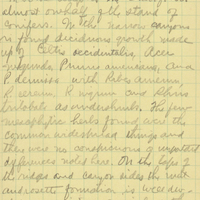 almost oneholf yolk stand of
conifers. In the narrow canyons
on found deciduous growth made
up of Celtis occidentalis, Acer
negundo, Prunus americana, and
P. demissa with Ribes aureum,
R. cereum, R. and Rhus
trilobata as undershrubs. The few
mesophytic herbs found are the
common undershrub things and
there were no conspicuous or important
differences noted here. On the tops of
the ridges and canyon sides the mat
and rosette formation is well dev-